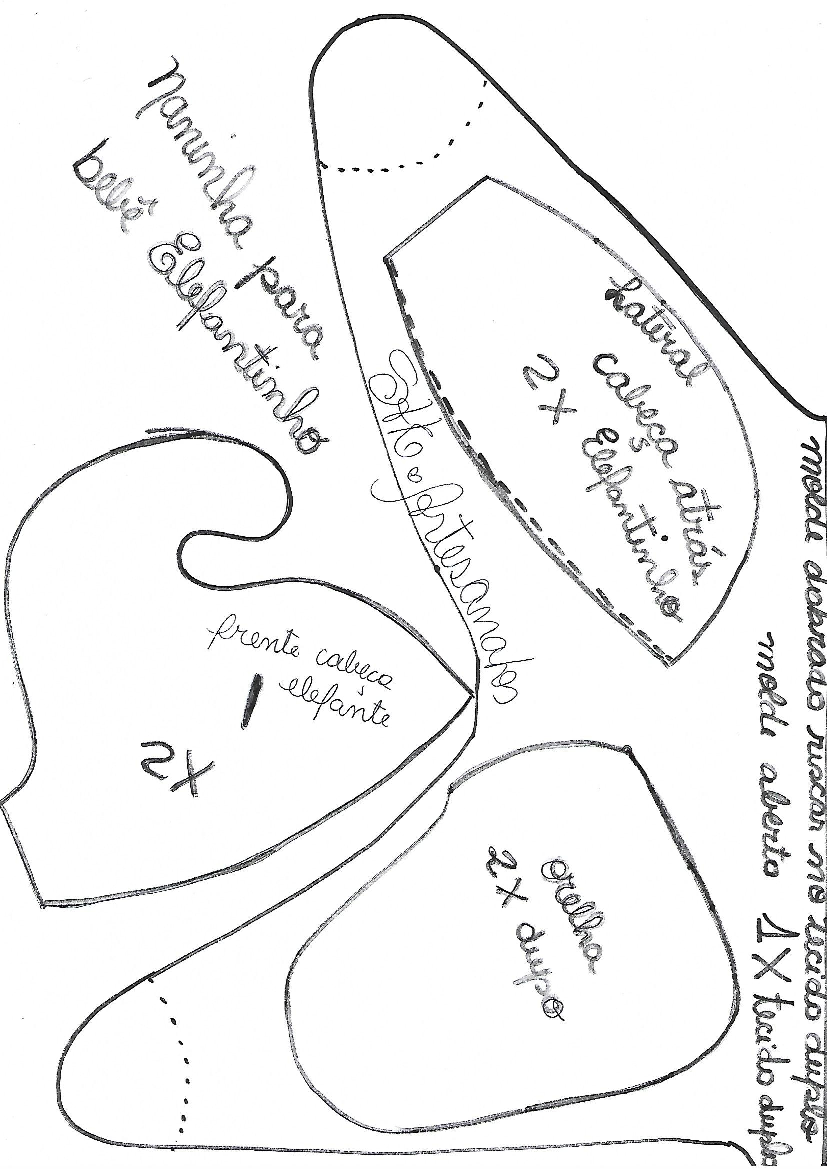 Naninha para
bebê Elefantinho
lateral
cabeça atrás
2X Elefantinho
Artesanatos
molde dobrado riscar no tecido duplo
molde aberto 1X tecido duplo
frente cabeça
elefante
2X
orelha
2X duplo